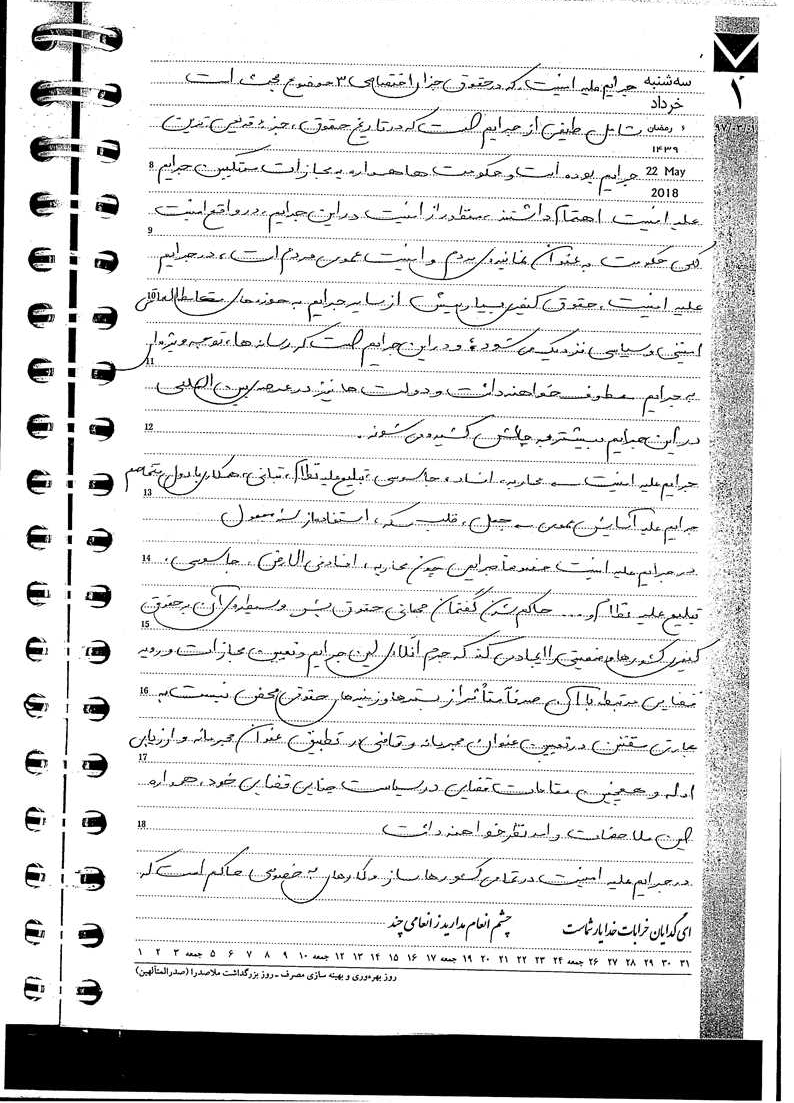 ۱
۹۷/۰۳/۰۱
سه‌شنبه
خرداد
رمضان
۱۴۳۹
22 May
2018
جرایم علیه امنیت که در حقوق جزای اختصاصی ۳ موضوع بحث است
شامل طیفی از جرایم است که در تاریخ حقوق، جزء قدیمی ترین
8 جرایم بوده است و حکومت ها همواره به مجازات سنگین جرایم
علیه امنیت اهتمام داشتند منظور از امنیت در این جرایم، در واقع امنیت
9
کلی حکومت به عنوان نماینده‌ی مردم و امنیت عمومی مردم است، در جرایم
علیه امنیت، حقوق کیفری بسیار بیش از سایر جرایم به حوزه‌های
10
امنیتی و سیاسی نزدیک می شود و در این جرایم است که رسانه ها، توجه ویژه‌ای
11
به جرایم معطوف خواهند داشت و دولت ها نیز در عرصه بین المللی
12 در این جرایم بیشتر به چالش کشیده می شوند.
جرایم علیه امنیت ← محاربه، افساد، جاسوسی، تبلیغ علیه نظام، تبانی، همکاری با دول متخاصم
13
جرایم علیه آسایش عمومی ← جعل، قلب سکه، استفاده از سند مجعول
14 در جرایم علیه امنیت خصوصاً جرایمی چون محاربه، افساد فی الارض، جاسوسی،
تبلیغ علیه نظام و... حاکم شدن گفتمان جهانی حقوق بشر و سیطره‌ی آن بر حقوق
15
کیفری کشورها وضعیتی را ایجاد می کند که جرم انگاری این جرایم و تعیین مجازات و رویه
16 قضایی مرتبط با آن صرفاً متأثر از بسترها و زمینه های حقوقی محض نیست به
عبارتی مقنن در تعیین عنوان مجرمانه و قاضی در تطبیق عنوان مجرمانه و ارزیابی
17
ادله و همچنین مقامات قضایی در سیاست جنایی قضایی خود، همواره
18 این ملاحظات را مد نظر خواهند داشت
در جرایم علیه امنیت در تمامی کشورها ساز و کارهای به خصوصی حاکم است که
ای گدایان خرابات خدا یار شماست چشم انعام مدارید ز انعامی چند
۱ ۲ ۳ جمعه ۵ ۶ ۷ ۸ ۹ ۱۰ جمعه ۱۲ ۱۳ ۱۴ ۱۵ ۱۶ ۱۷ جمعه ۱۹ ۲۰ ۲۱ ۲۲ ۲۳ ۲۴ جمعه ۲۶ ۲۷ ۲۸ ۲۹ ۳۰ ۳۱
روز بهره‌وری و بهینه سازی مصرف ـ روز بزرگداشت ملاصدرا (صدرالمتألهین)